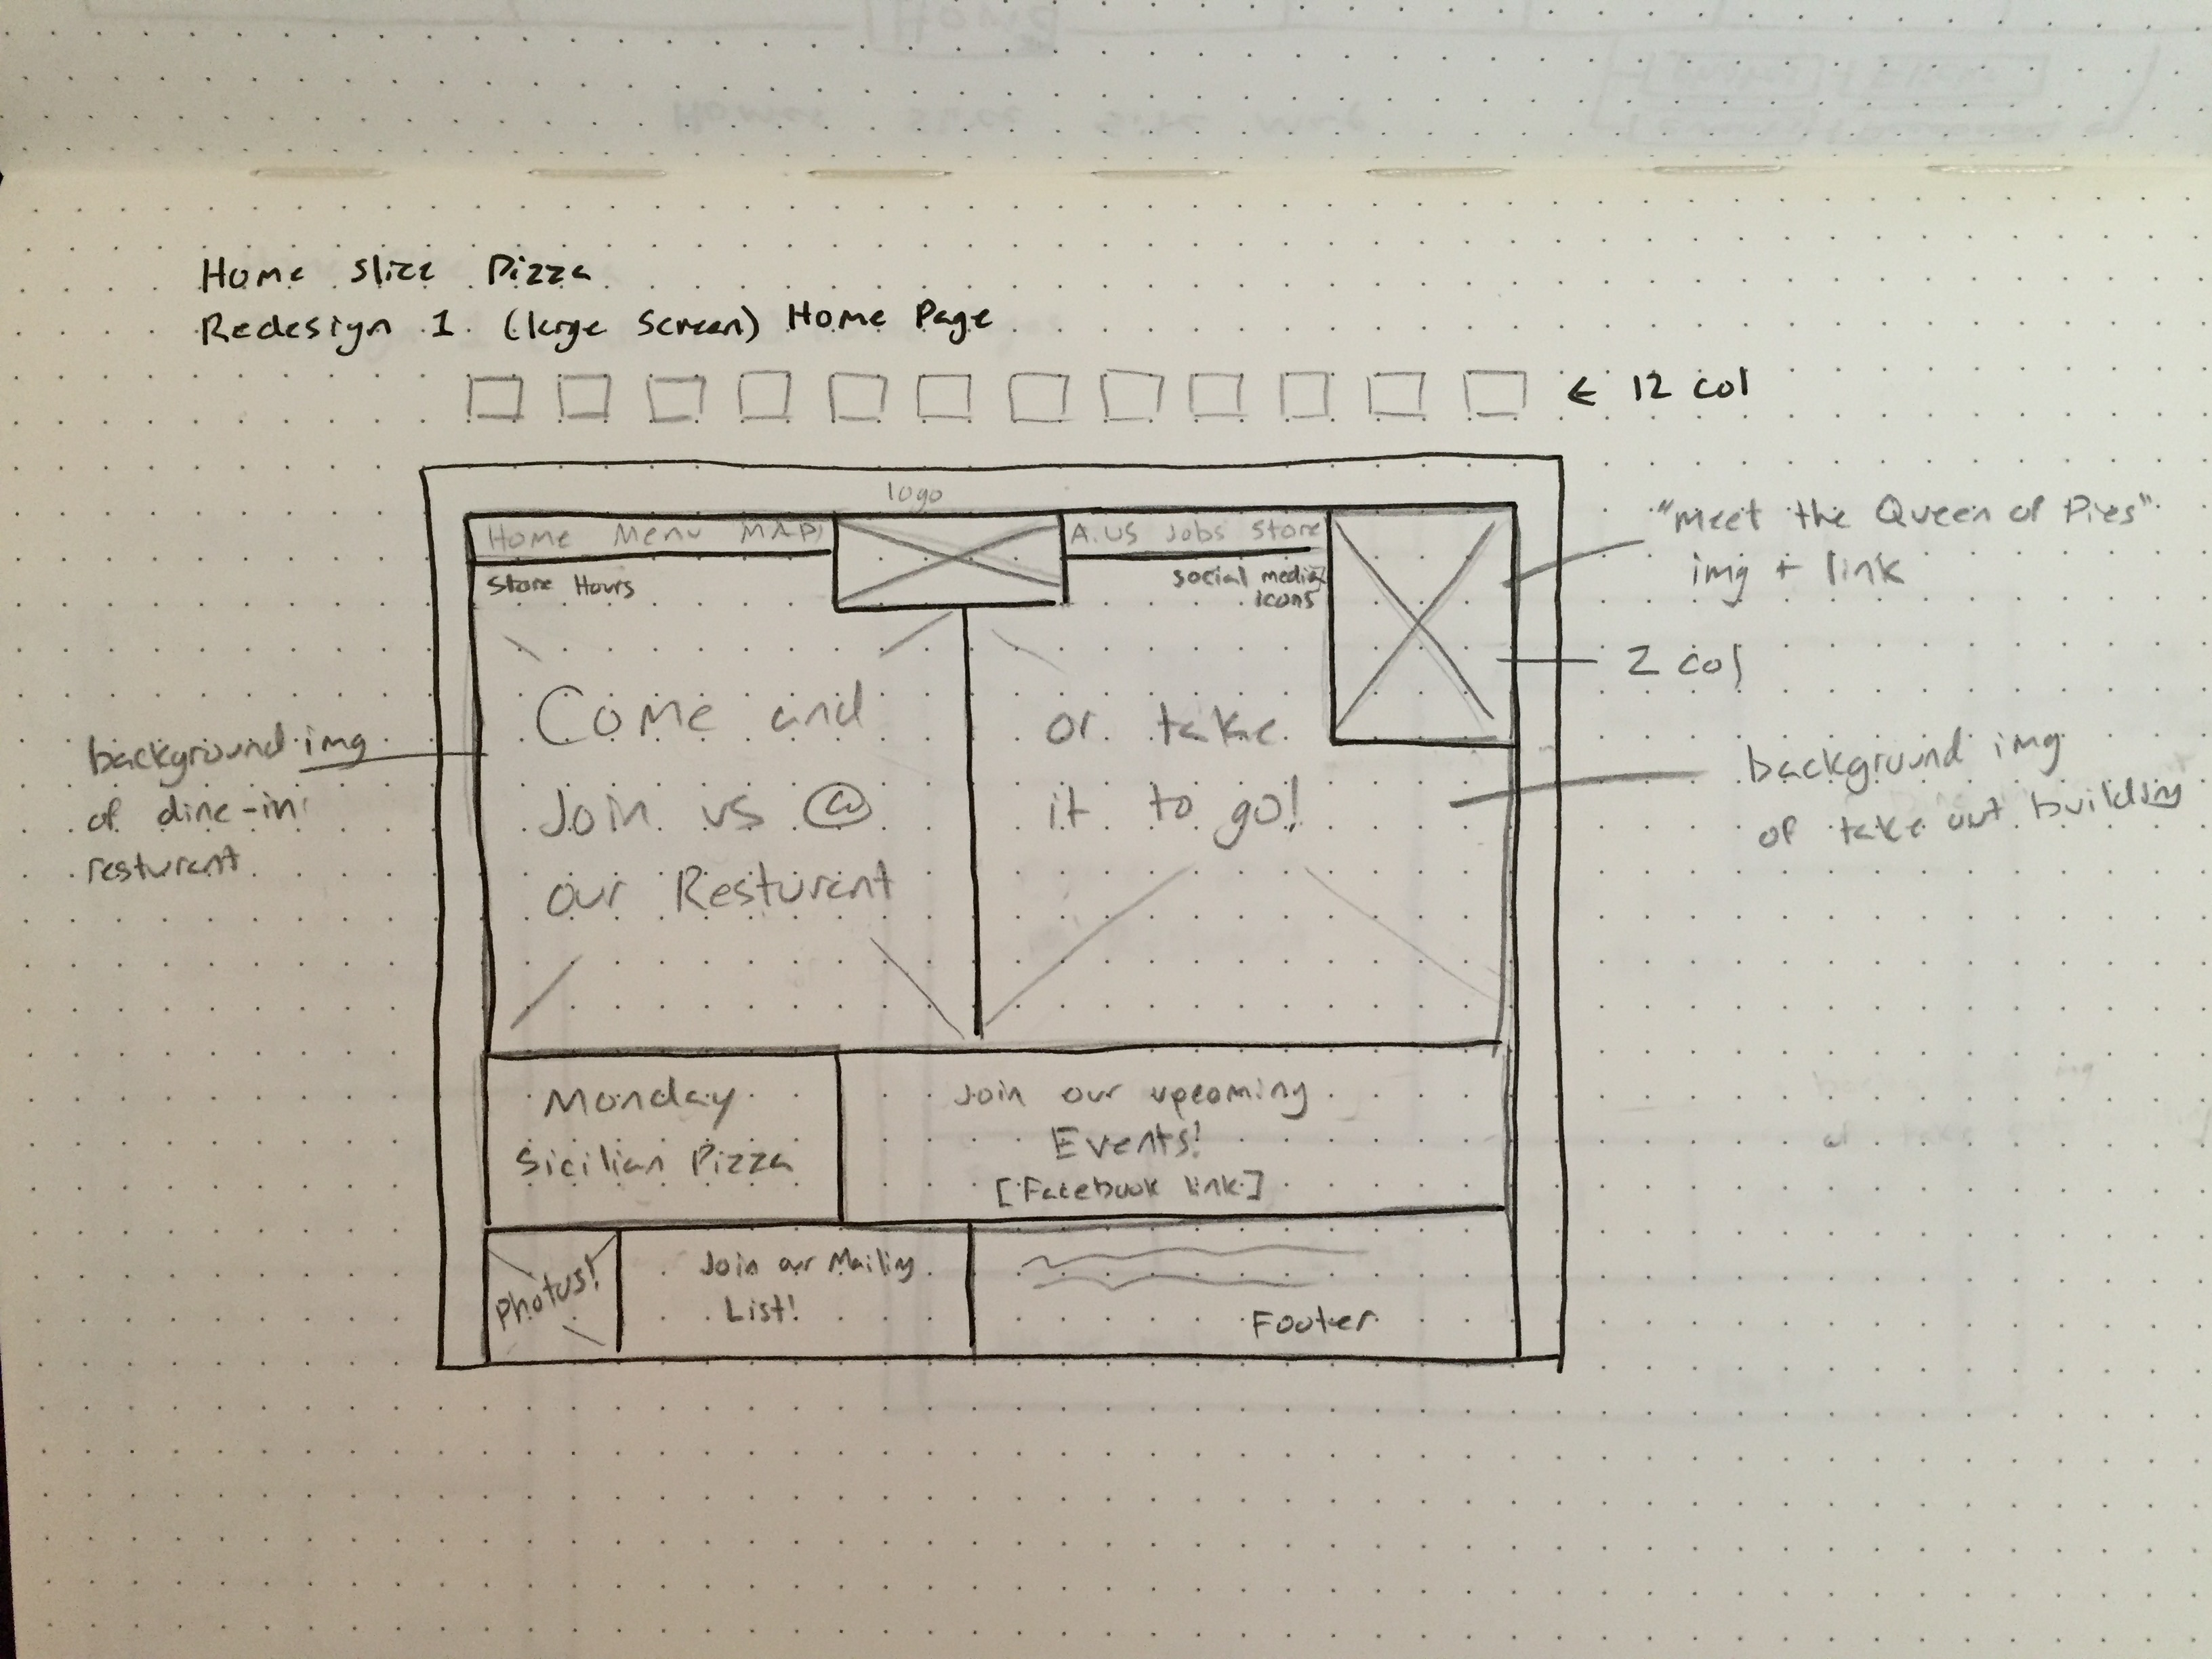 Home Slice Pizza
Redesign 1 (large screen) Home Page
← 12 col
logo
Home Menu MAP
A.US Jobs Store
Store Hours
social media
icons
"Meet the Queen of Pies"
img + link
2 col
Come and
Join us @
our Resturant
or take
it to go!
background img
of dine-in
resturant
background img
of take out building
Monday
Sicilian Pizza
Join our upcoming
Events!
[Facebook link]
Photos!
Join our Mailing
List!
Footer